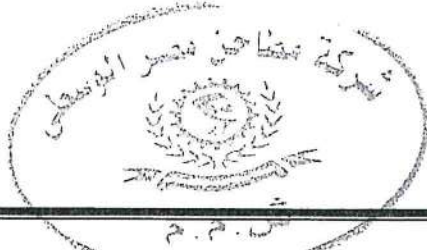 شركة مطاحن مصر الوسطى
ش.م.م